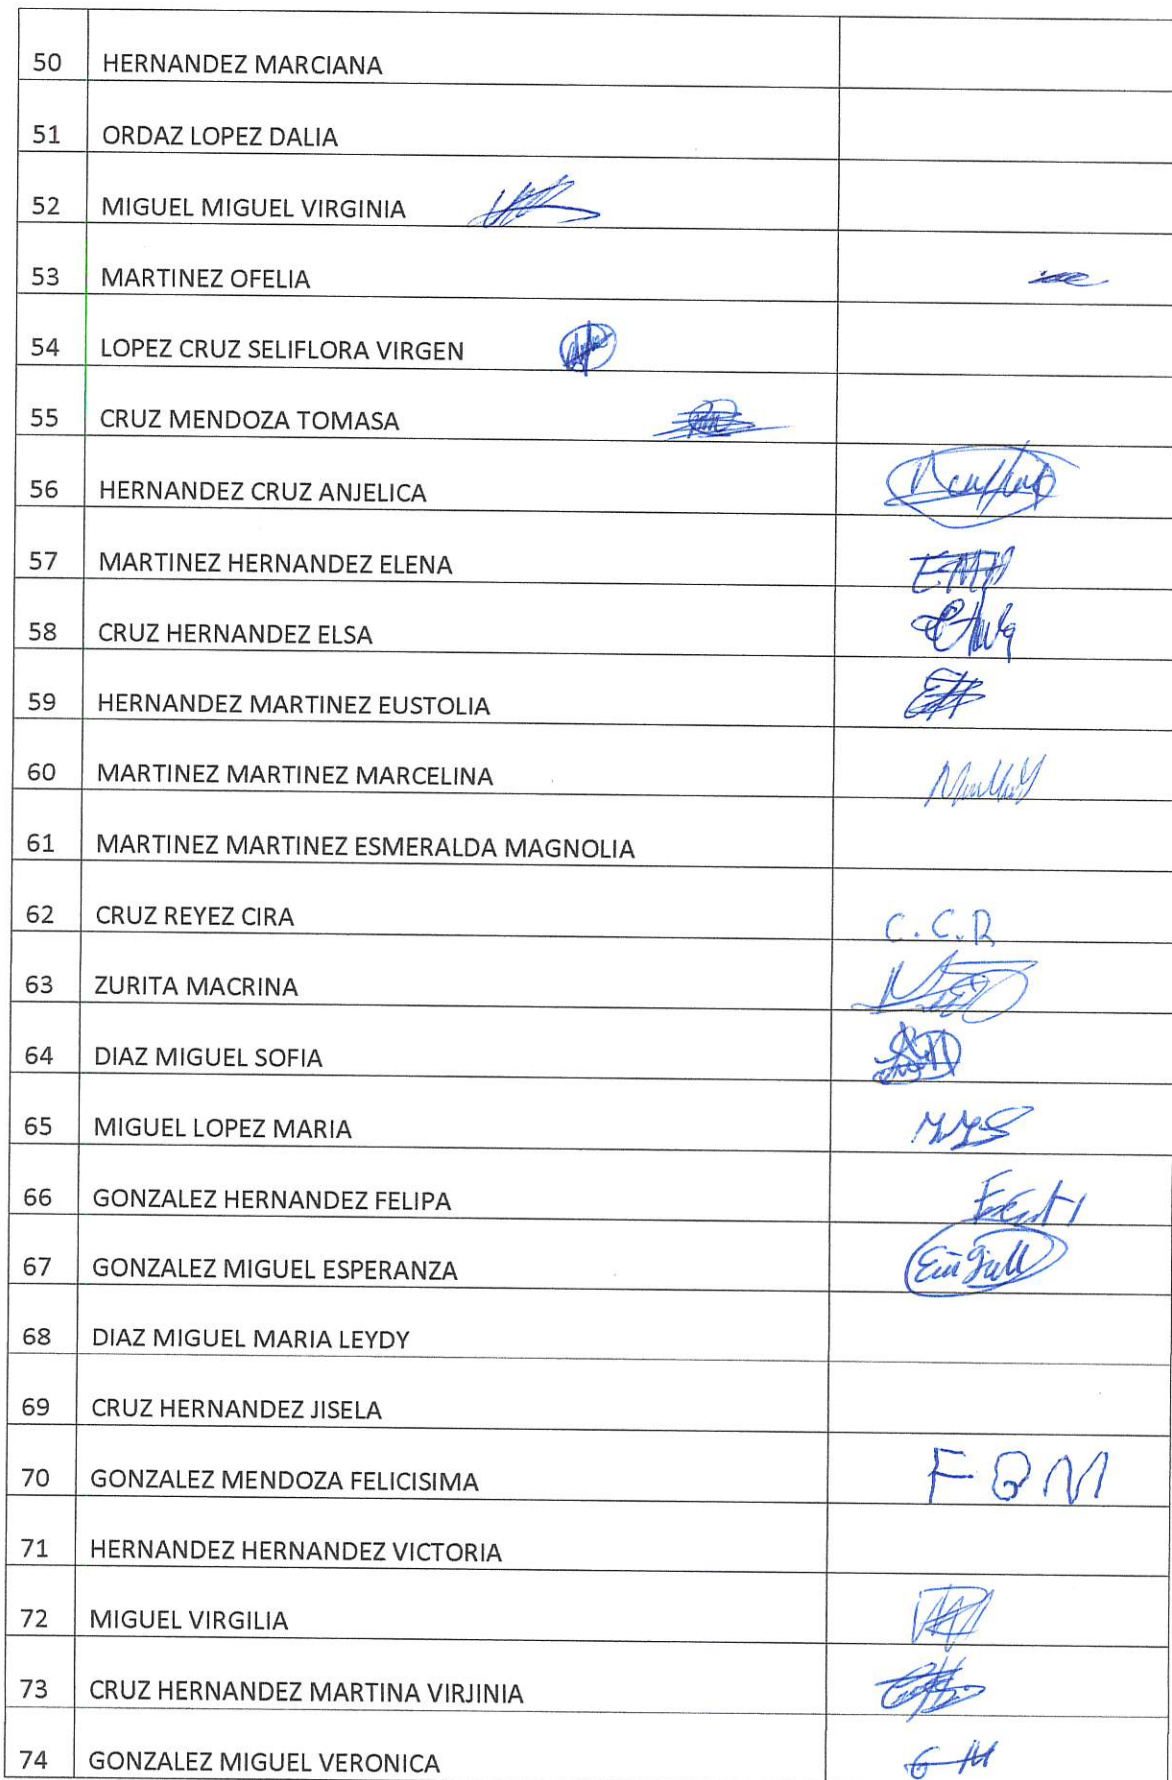 50 HERNANDEZ MARCIANA
51 ORDAZ LOPEZ DALIA
52 MIGUEL MIGUEL VIRGINIA
53 MARTINEZ OFELIA
54 LOPEZ CRUZ SELIFLORA VIRGEN
55 CRUZ MENDOZA TOMASA
56 HERNANDEZ CRUZ ANJELICA
57 MARTINEZ HERNANDEZ ELENA E.MH
58 CRUZ HERNANDEZ ELSA
59 HERNANDEZ MARTINEZ EUSTOLIA
60 MARTINEZ MARTINEZ MARCELINA
61 MARTINEZ MARTINEZ ESMERALDA MAGNOLIA
62 CRUZ REYEZ CIRA C.C.R
63 ZURITA MACRINA
64 DIAZ MIGUEL SOFIA
65 MIGUEL LOPEZ MARIA
66 GONZALEZ HERNANDEZ FELIPA
67 GONZALEZ MIGUEL ESPERANZA
68 DIAZ MIGUEL MARIA LEYDY
69 CRUZ HERNANDEZ JISELA
70 GONZALEZ MENDOZA FELICISIMA F G M
71 HERNANDEZ HERNANDEZ VICTORIA
72 MIGUEL VIRGILIA
73 CRUZ HERNANDEZ MARTINA VIRJINIA
74 GONZALEZ MIGUEL VERONICA